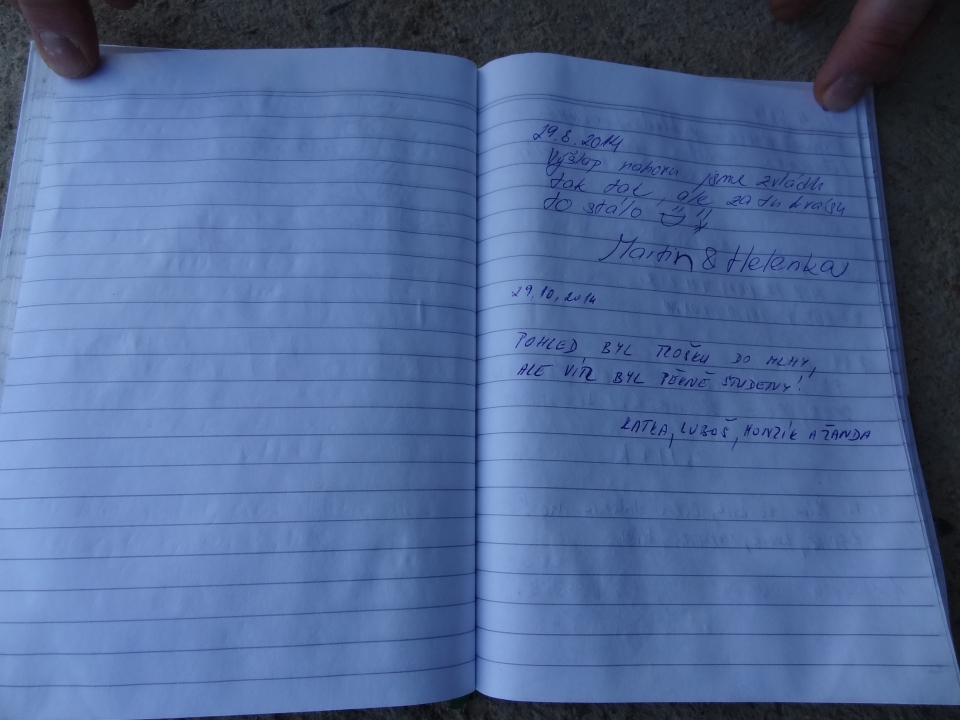 29.8.2014
Výšlap nahoru jsme zvládli
tak tak, ale za tu krásu
to stálo
Martin & Helenka
29.10.2014
POHLED BYL TROŠKU DO MLHY,
ALE VÍTR BYL PĚKNĚ STUDENÝ!
KATKA, LUBOŠ, HONZÍK A ŽANDA